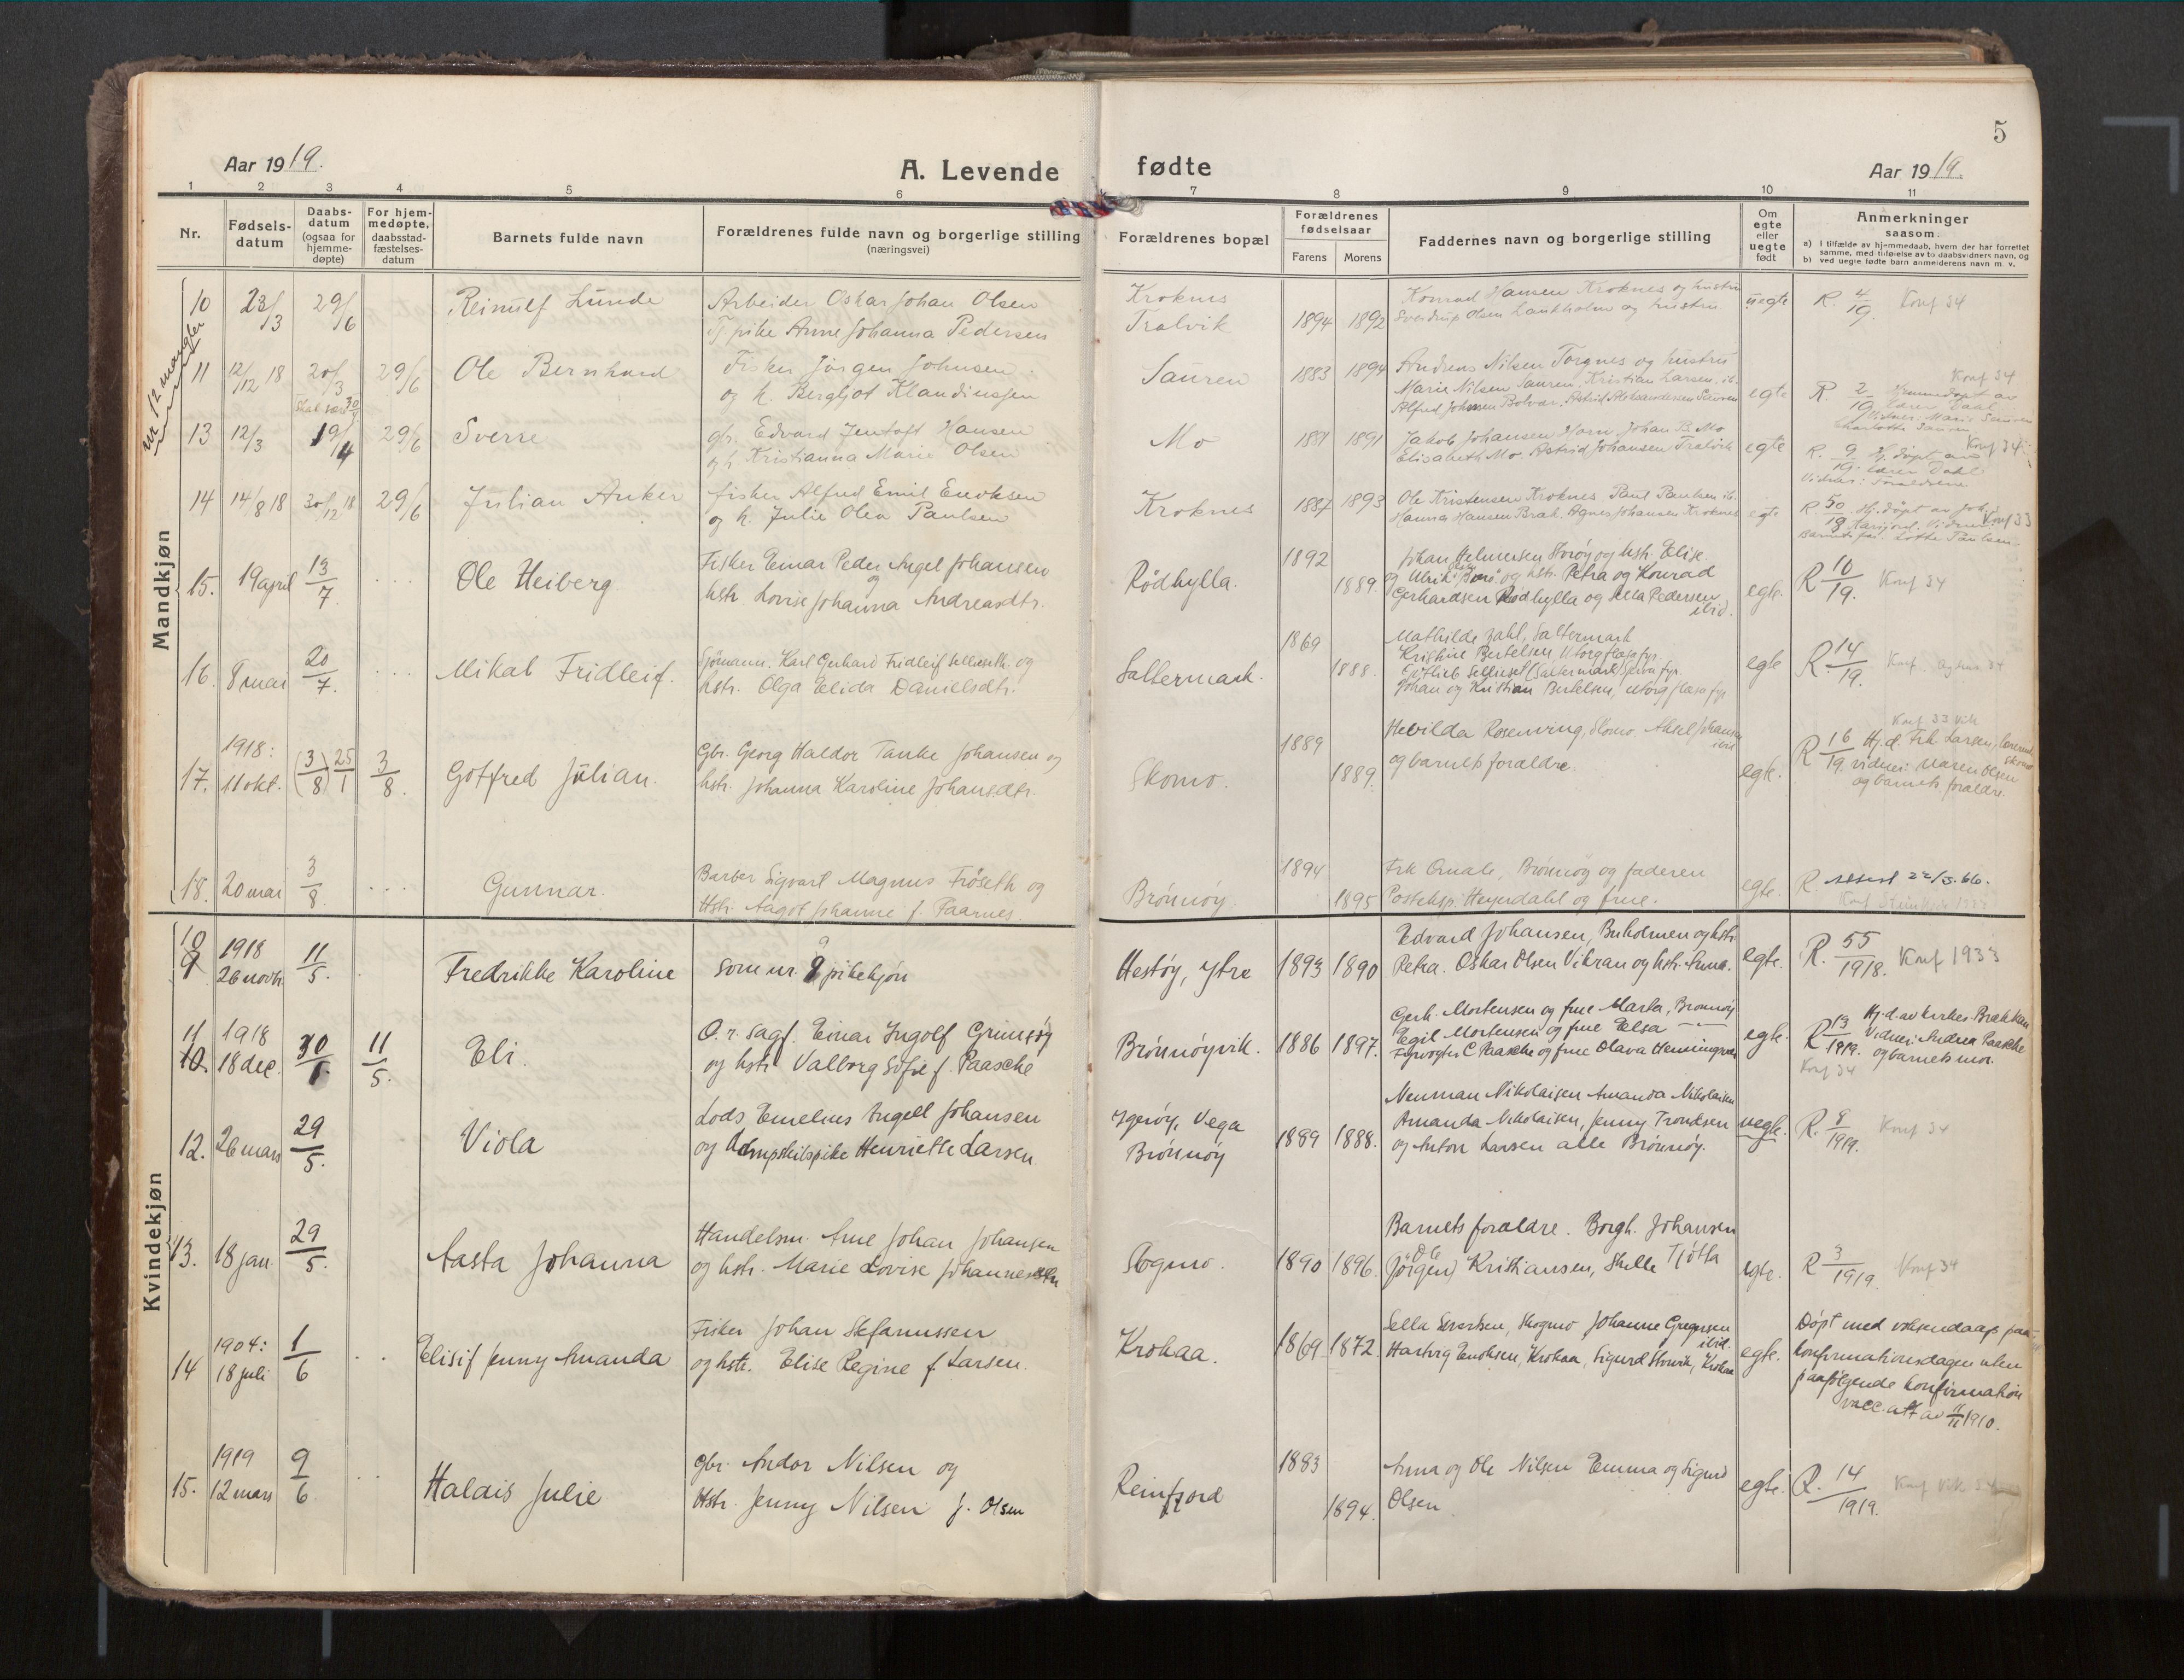 5
Aar 1919.
A. Levende
fødte
Aar 1919.
1 2 3 4 5 6 7 8 9 10 11
Nr.
Fødsels-
datum
Daabs-
datum
(ogsaa for
hjemme-
døpte)
For hjem-
medøpte,
daabsstad-
fæstelses-
datum
Barnets fulde navn
Forældrenes fulde navn og borgerlige stilling
(næringsvei)
Forældrenes bopæl
Forældrenes
fødselsaar
Farens Morens
Faddernes navn og borgerlige stilling
Om
egte
eller
uegte
født
Anmerkninger
saasom:
a) i tilfælde av hjemmedaab, hvem der har forrettet
samme, med tilføielse av to daabsvidners navn, og
b) ved uegte fødte barn anmelderens navn m. v.
Mandkjøn
nr 12 mangler
10 23/3 29/6 Reinulf Lunde
Arbeider Oskar Johan Olsen
Tj.pike Anne Johanna Pedersen
Kroknes
Tralvik
1894 1892
Konrad Hansen Kroknes og hustru
Sverdrup Olsen Lankholm og hustru
uegte R. 4/19 Konf 34
11 12/12 18 20/3 29/6 Ole Bernhard
Fisker Jørgen Johnsen
og h. Bergljot Klandinssen
Sauren
1883 1894
Andreas Nilsen Torgnes og hustru
Marie Nilsen Sauren, Kristian Larsen, ib.
Alfred Johnsen Bolvær, Astrid Aleksandersen Sauren
egte R. 2/19 Hjemmedøpt av
lærer Dahl
Konf 34
Skal være 30/
13 12/3 19/4 29/6 Sverre
gbr. Edvard Jentoft Hansen
og h. Kristianna Marie Olsen
Mo
1891
Jakob Johansen Horn Johan B. Mo
Elisabeth Mo. Astrid Johansen Tralvik
egte R. 9/19 Hj. døpt av
lærer Dahl
Vidner: Forældrene
Konf 34
14 14/8 18 30/12 18 29/6 Julian Anker
fisker Alfred Emil Enoksen
og h. Julie Olea Paulsen
Kroknes
1887 1893
Ole Kristensen Kroknes Paul Paulsen ib.
Hanna Hansen Bræk. Agnes Johansen Kroknes
egte R 50/19 Hj. døpt av Joh.
Konf 33
Lotte Paulsen.
15. 19 april 13/7. ... Ole Heiberg.
Fisker Einar Peder Angel Johansen
og
hstr. Lovise Johanna Andreasdtr.
Rødhylla.
1892
1889.
Johan Helmersen Storøy og hstr. Elise.
og Ulrik og hstr. Petra og Konrad
Gerhardsen Rødhylla og Sella Pedersen
ibid.
egte. R 10/19. Konf 34
16. 8 mai 20/7. ... Mikal Fridleif.
Sjømann. Karl Gerhard Fridleif Sellieseth. og
hstr. Olga Elida Danielsdtr.
Saltermark.
1869
1888.
Mathilde Zahl, Saltermark
Kristine Bertelsen Utorgflæsa fyr
Gotlieb Sellieset (Saltermark)
Johan og Kristian Bertelsen, Utorgflæsa fyr
egte R. 14/19. Konf. 34
17. 1918: 11 okt. (3/8) 25/1 3/8. Gotfred Julian.
Gbr. Georg Haldor Tanke Johansen og
hstr. Johanna Karoline Johansdtr.
Skomo.
1889
1889.
Hevilda Rosenving, Skomo. Aksel Johansen
ibid
og barnets forældre.
egte. R 16/19. Hj.d. Frk. Larsen,
vidner: Maren Olsen
og barnets forældre.
Konf 33 Vik
18. 20 mai 3/8 ... Gunnar.
Barber Sigvart Magnus Frøseth og
Hstr. Aagot Johanne f. Paarnes.
Brønnøy.
1894
1895
Frk Amale, Brønnøy og faderen
Posteksp. Heyerdahl og frue.
egte. R. Attest 22/3. 66.
Kvindekjøn
10 9 1918 26 novbr. 11/5. Fredrikke Karoline
som nr. 9 pikekjøn
Hestøy, Ytre
1893 1890
Edvard Johansen, Buholmen og hstr.
Petra. Oskar Olsen Vikran og hstr. Anna.
egte. R. 55/1918. Konf 1933
11 10. 1918 18 dec. 30/1 11/5. Eli.
O.r. sagf. Einar Ingolf Grimsøy
og hstr. Valborg Sofie f. Paasche
Brønnøyvik.
1886 1897.
Gerh. Mortensen og frue Marta, Brønnøy
Egil Mortensen og frue Elsa
Fyrvogter C Paasche og frue Olava Henningsen
egte. R 13/1919. Hj.d. av kirkes. Brækkan
Vidner: Andrea Paasche
og barnets mor.
Konf 34
12. 26 mars 29/5. Viola
Lods Emelius Angell Johansen
og Henriette Larsen.
Ygerøy, Vega
Brønnøy
1889 1888.
Neuman Nikolaisen Amanda Nikolaisen
Amanda Nikolaisen, Jenny Trondsen
og Anton Larsen alle Brønnøy.
uegte. R. 8/1919. Konf 34
13. 18 jan. 29/5. Aasta Johanna
Handelsm. Arne Johan Johansen
og hstr. Marie Lovise Johannesdtr
Skogmo.
1890 1896.
Barnets forældre. Borgh. Johansen
Ole
(Jørgen) Kristiansen, Skelle Tjøtta
egte. R 3/1919. Konf 34
14 1904: 18 juli 1/6 .. Elisif Jenny Amanda
Fisker Johan Stefanussen
og hstr. Elise Regine f Larsen.
Krokaa.
1869 1872.
Sella Sivertsen, Skogmo Johanne Gregersen
ibid.
Hartvig Enoksen, Krokaa, Sigurd Storvik, Krokaa
egte. Døpt med voksendaap paa
konfirmationsdagen uten
paafølgende konfirmation
vacc.att av 11/11 1910.
15. 1919 12 mars 9/6 .. Halais Julie
gbr. Andor Nilsen og
Hstr. Jenny Nilsen f. Olsen
Reinfjord
1883
1894.
Anna og Ole Nilsen Emma og Sigurd
Olsen
egte. R. 14/1919. Konf Vik 34